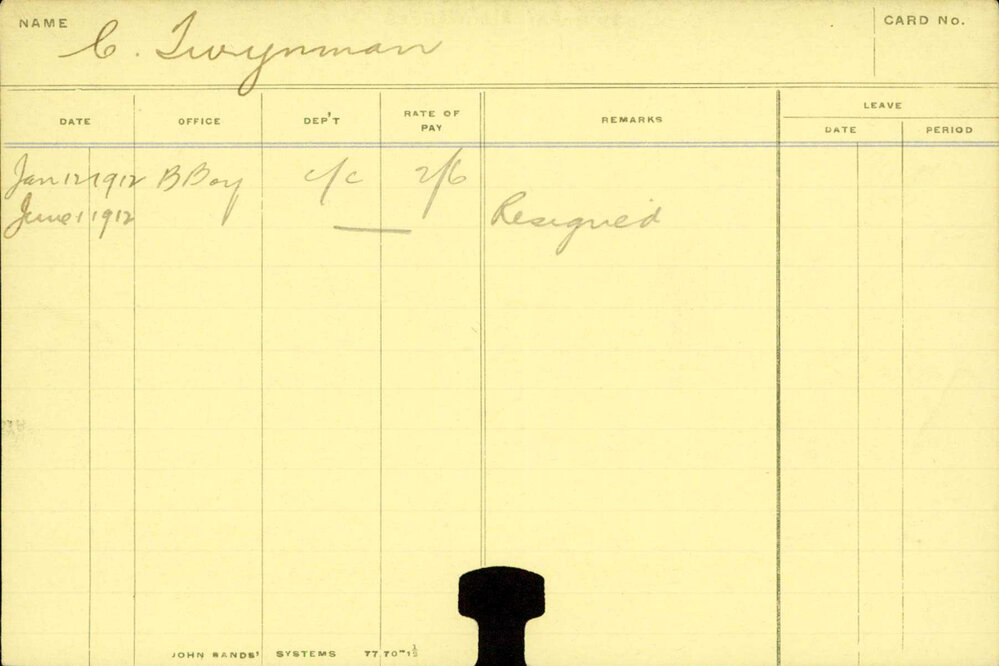 NAME C. Twynman CARD No.
DATE OFFICE DEP'T RATE OF PAY REMARKS LEAVE
DATE PERIOD
Jan 12 1912 B Boy c/c 2/6
June 1 1912 — Resigned
JOHN SANDS' SYSTEMS 77.70"-1½